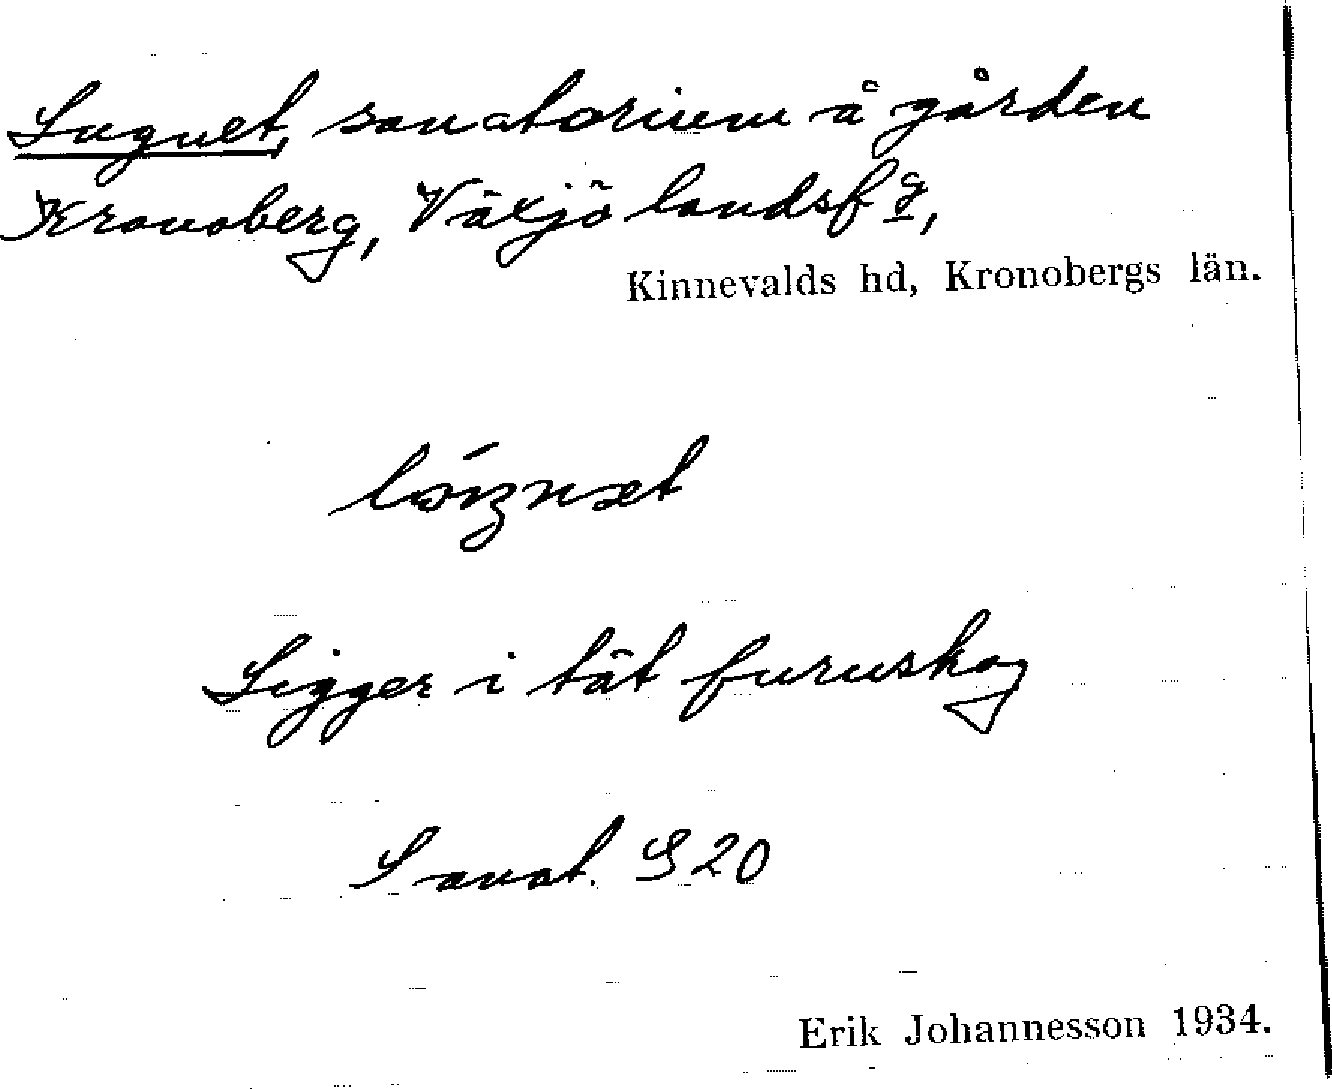 Lugnet, sanatorium å gården
Kronoberg, Växjö landsfg,
Kinnevalds hd, Kronobergs län.
Ligger i tät furuskog
Sanat. S 20
Erik Johannesson 1934.